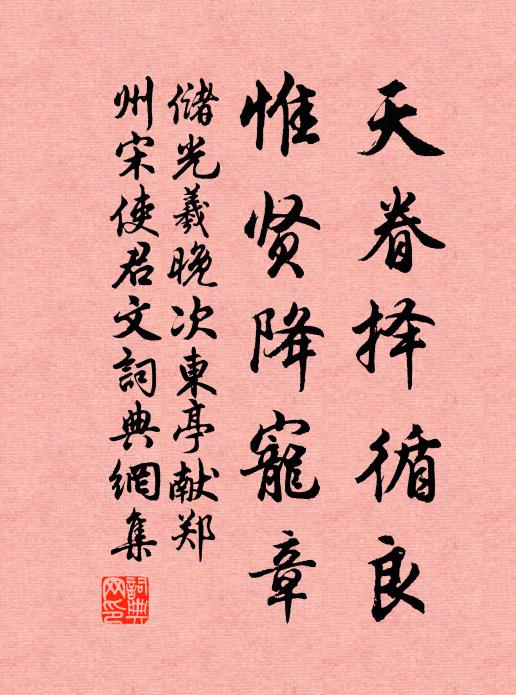 天眷择循良
惟贤降寵章
储光羲晚次東亭献郑
州宋使君文詞典網集
詞典网印